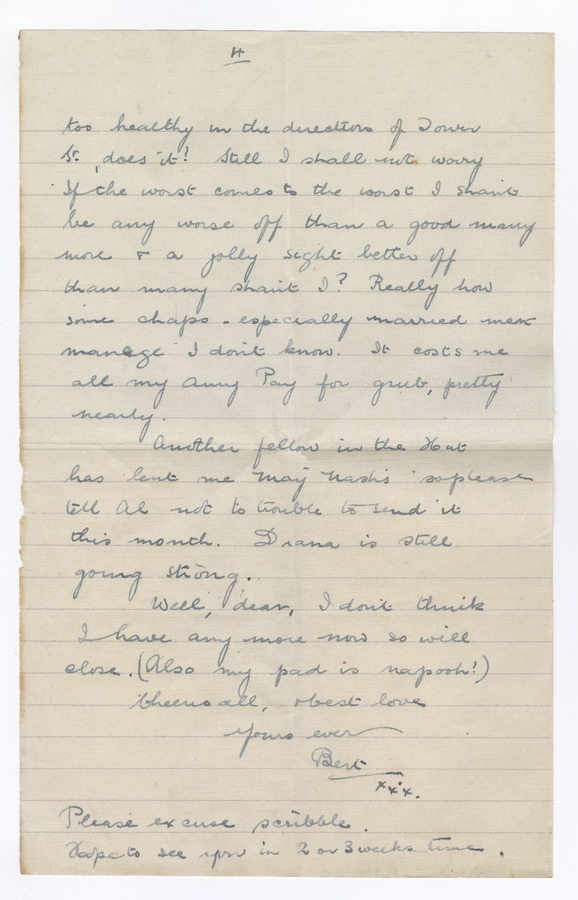 4
too healthy in the direction of Tower
St. does it? Still I shall not worry
If the worst comes to the worst I shan't
be any worse off than a good many
more & a jolly sight better off
than many shan't I? Really how
some chaps - especially married men
manage I don't know. It costs me
all my Army Pay for grub, pretty
nearly.
Another fellow in the Hut
has lent me May Nash's so please
tell Al not to trouble to send it
this month. Diana is still
going strong.
Well, dear, I don't think
I have any more now so will
close. (Also my pad is napooh!)
Cheerio all, & best love
Yours ever
Bert
xxx.
Please excuse scribble.
Hope to see you in 2 or 3 weeks time.